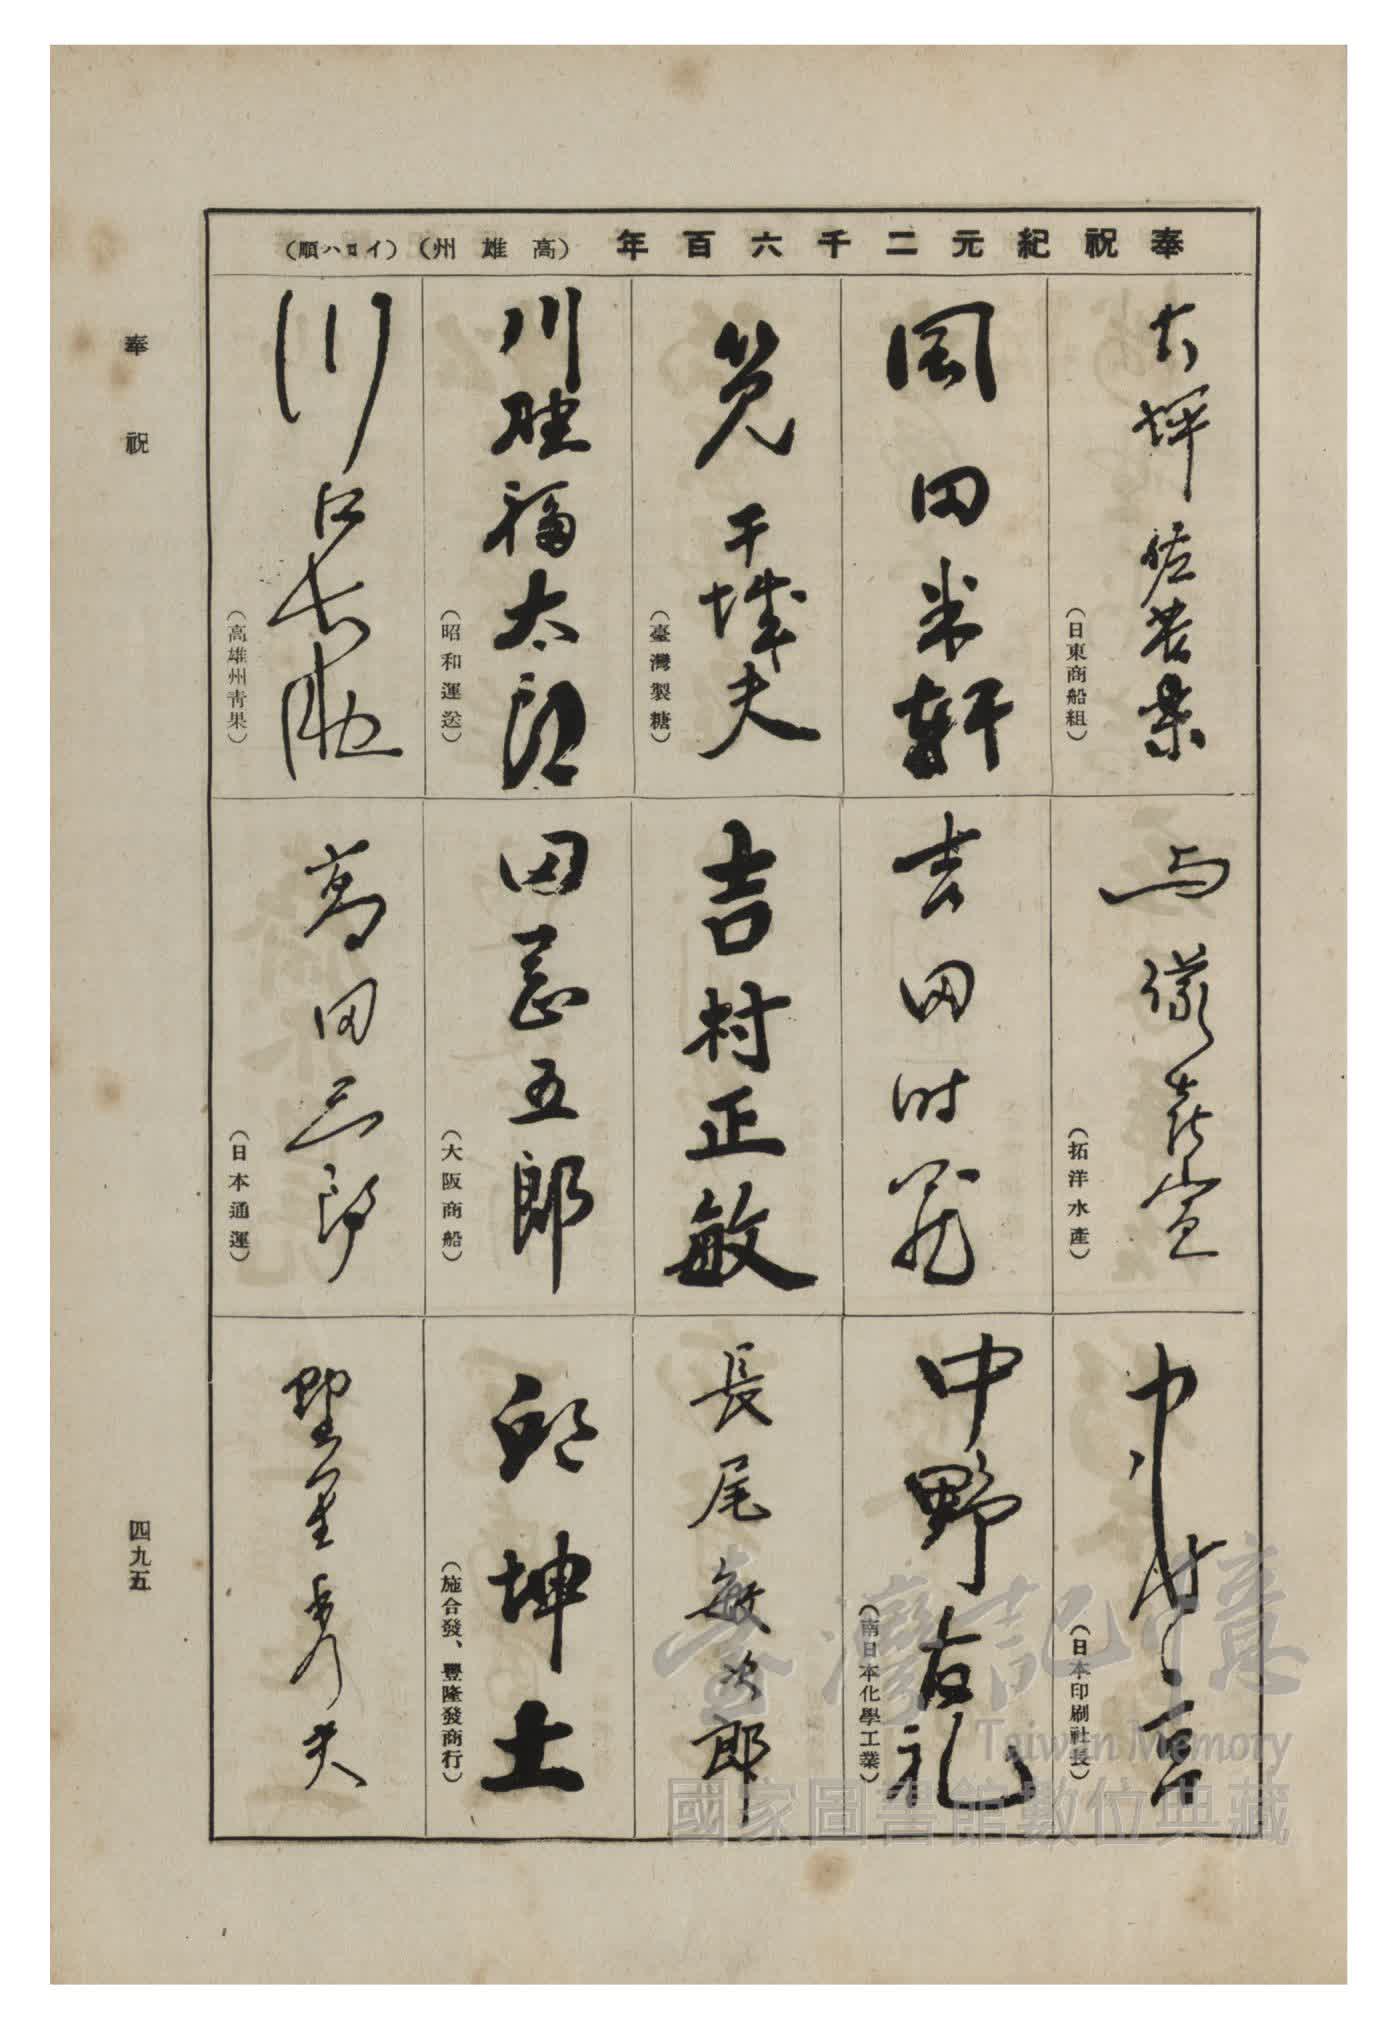 奉祝紀元二千六百年 (高雄州) (イロハ順)
大坪佐苦楽
(日東商船組)
岡田米軒
筧干城夫
(臺灣製糖)
川野福太郎
(昭和運送)
川口長助
(高雄州靑果)
与儀喜宣
(拓洋水產)
吉田
吉村正敏
田五郎
(大阪商船)
高田三郎
(日本通運)
中
(日本印刷社長)
中野友礼
(南日本化學工業)
長尾敏次郎
邱坤土
(施合發、豐隆發商行)
野里秀夫
奉祝
四九五
臺灣記憶
Taiwan Memory
國家圖書館數位典藏